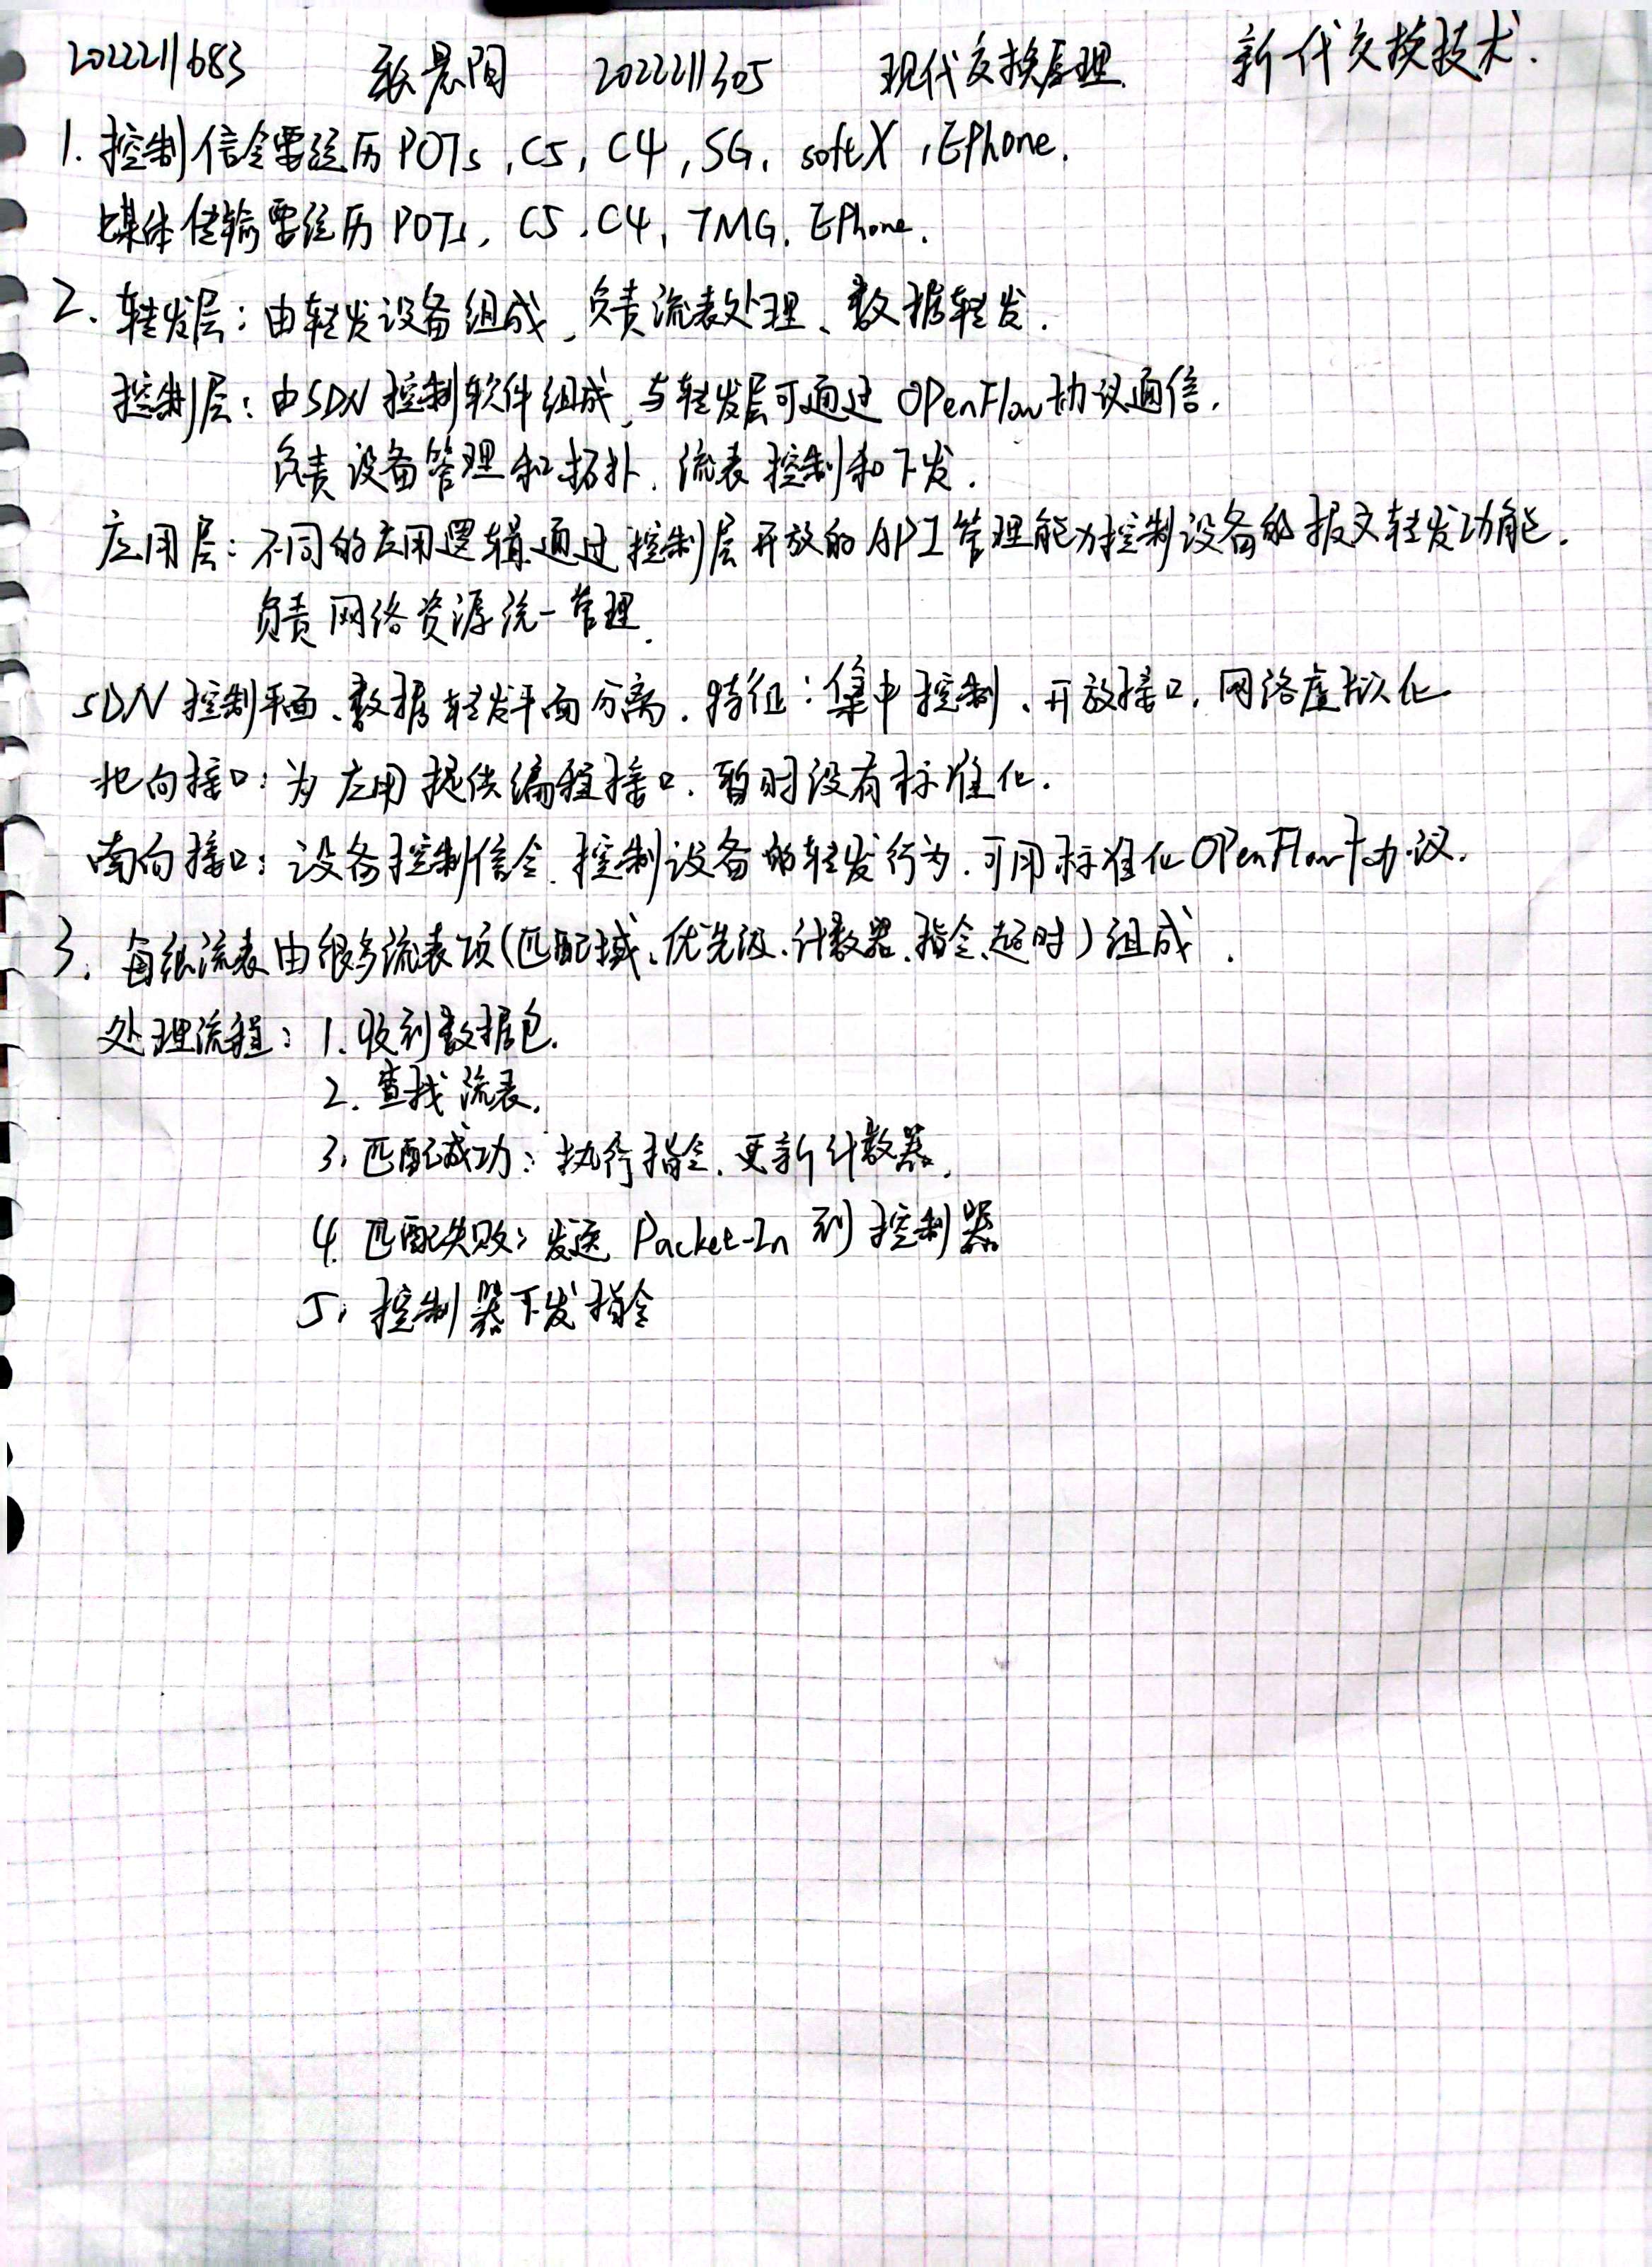 2022211683 张晨阳 2022211305 现代交换原理 新一代交换技术.
1. 控制信令要经历 POTs, C5, C4, SG, softX, EPhone.
媒体传输要经历 POTs, C5, C4, TMG, EPhone.
2. 转发层: 由转发设备组成, 负责流表处理、数据转发.
控制层: 由SDN控制软件组成, 与转发层可通过 OPenFlow协议通信.
负责设备管理和拓扑、流表控制和下发.
应用层: 不同的应用逻辑通过控制层开放的API管理能力控制设备的报文转发功能.
负责网络资源统一管理.
SDN 控制平面、数据转发平面分离. 特征: 集中控制、开放接口, 网络虚拟化
北向接口: 为应用提供编程接口. 暂时没有标准化.
南向接口: 设备控制信令. 控制设备的转发行为. 可用标准化OPenFlow协议.
3. 每级流表由很多流表项(匹配域、优先级、计数器、指令、超时)组成.
处理流程: 1. 收到数据包.
2. 查找流表.
3. 匹配成功: 执行指令. 更新计数器.
4. 匹配失败: 发送 Packet-In 到控制器
5. 控制器下发指令